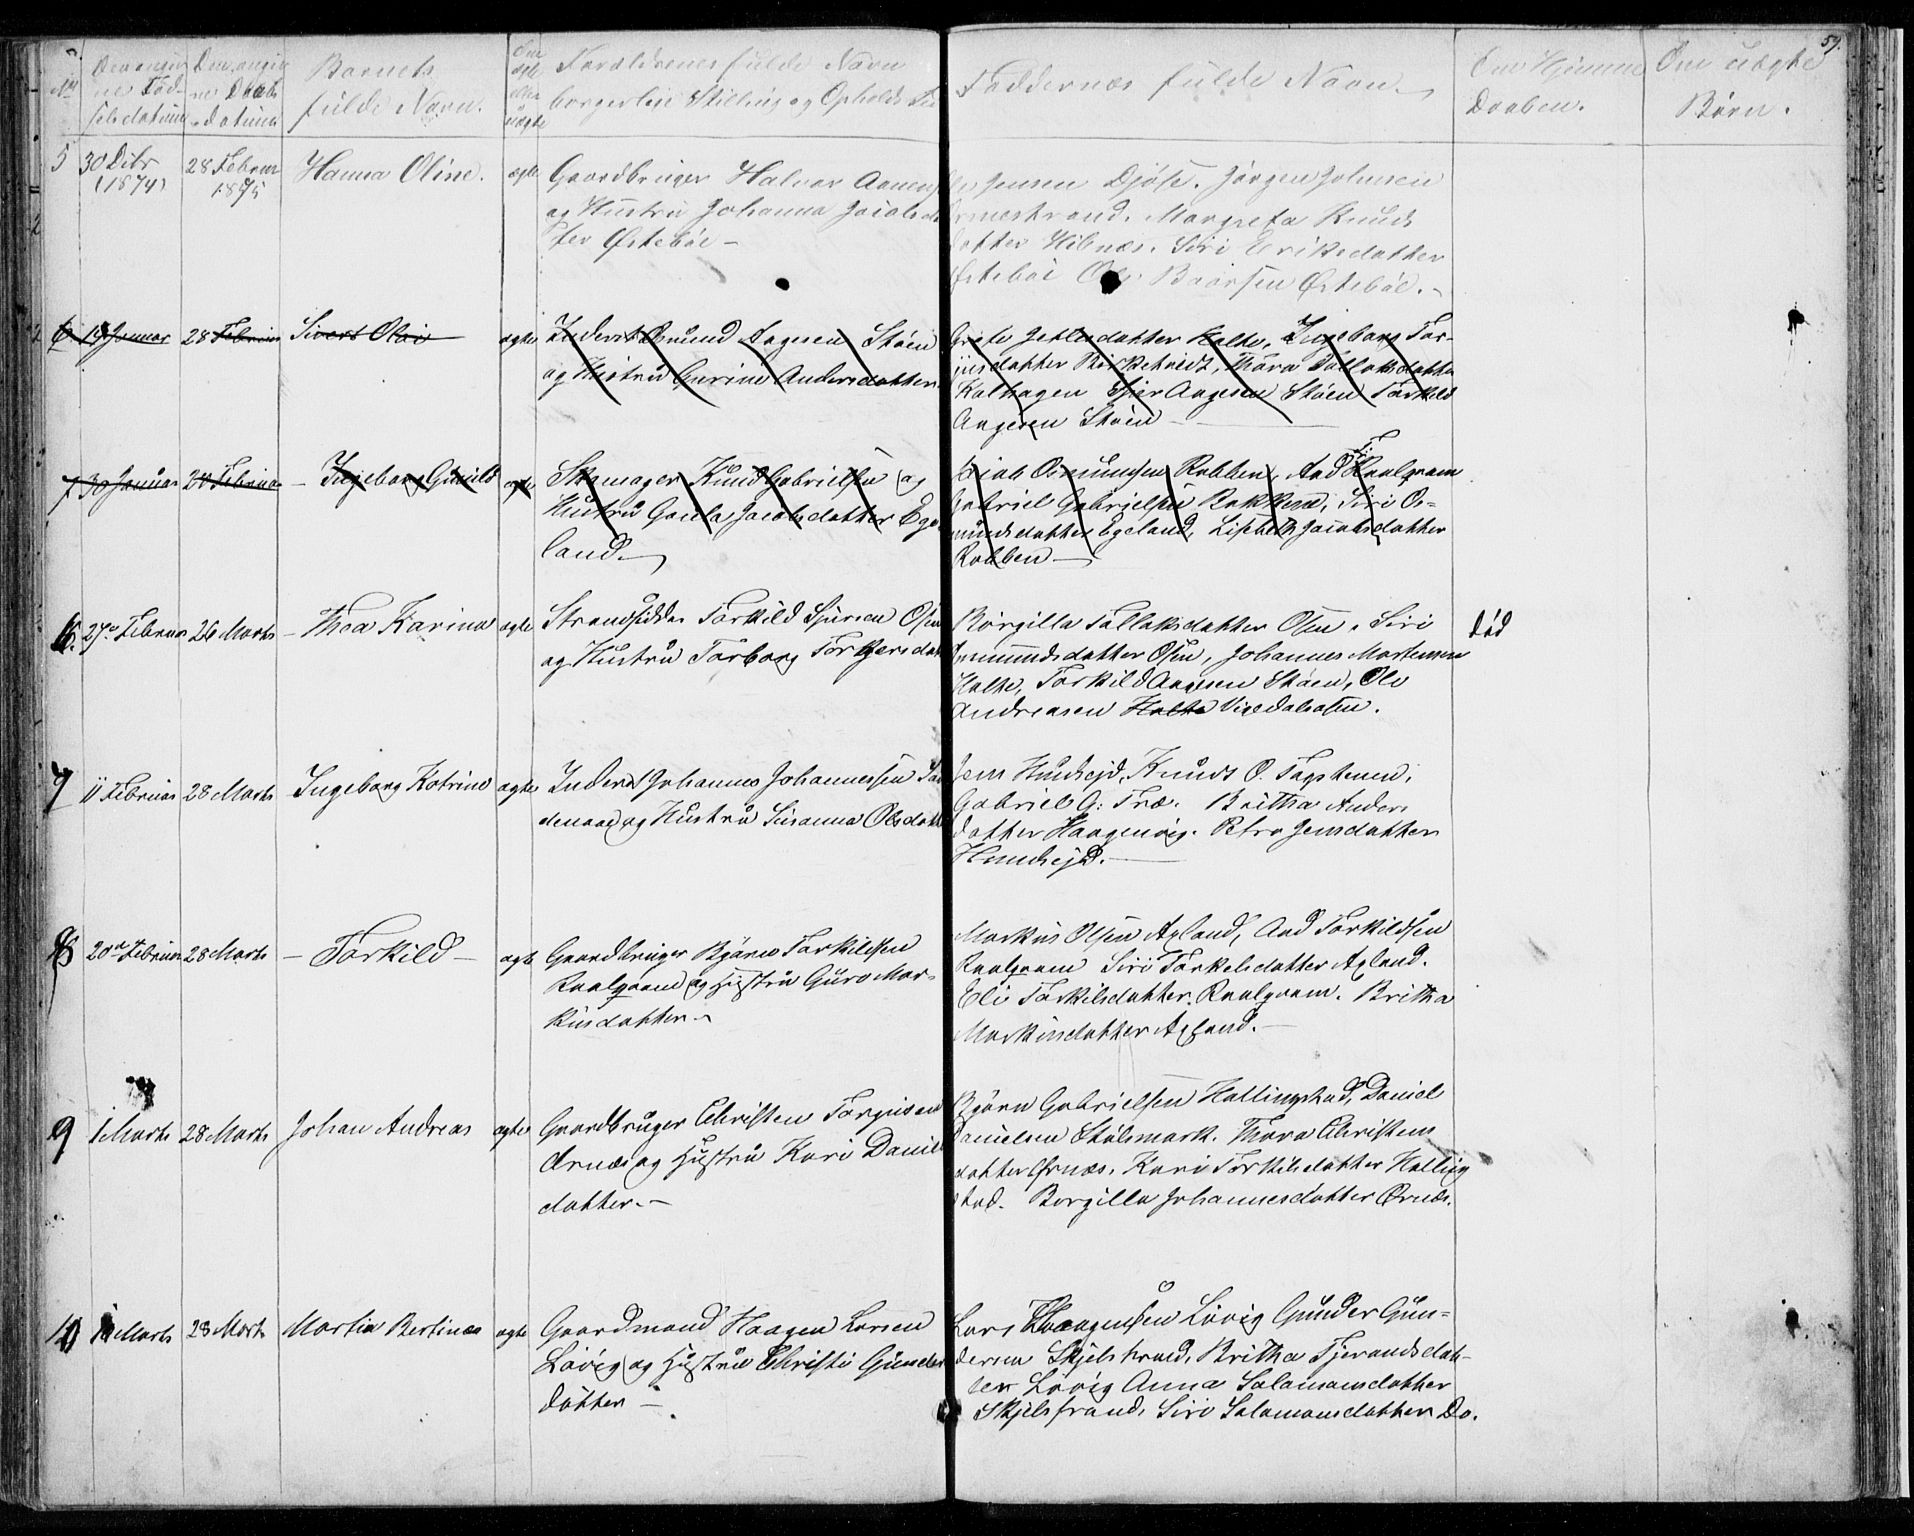 59.
No
Den angivne Fødselsdatum
Den angivne Daabsdatum
Barnets fulde Navn.
Om ægte eller uægte
Forældrenes fulde Navn borgerlige Stilling og Opholds
Faddernes fulde Navn.
Om Hjemme Daaben.
Om uægte Børn.
5 30 Debr (1874) 28 Februar 1875 Hanna Oline. ægte
Gaardbruger Halvor
og Hustru Johanna Jacobsdat
ter Østebøe –
Jensen Djøse. Jørgen Johnsen
Margreta Knuds
datter Hibnæs. Siri Eriksdatter
Østebøe Ole Baarsen Østebøe.
6 19 Januar 28 Februar Sivert Olai ægte
Inderst Osmund Aagesen Støen
og Hustru Gurine Andersdatter
Grete Jetlesdatter Holte, Ingeborg Tor-
jusdatter Thora Tollaksdatter
Kalhagen Sjur Aagesen Støen Torkild
Aagesen Støen –
7 30 Januar 28 Februar – Ingeborg Gunild ægte
Skomager Knud Gabrielsen og
Hustru Gaula Jacobsdatter Ege
land –
Jacob Osmundsen Robben, Aad T: Raalgvam
Gabriel Gabrielsen Bakkene, Siri Os-
mundsdatter Egeland, Lisebeth Jacobsdatter
Robben –
6. 27de Februar 26 Marts – Thea Karine ægte
Strandsidder Torkild Sjursen Osen
og Hustru Torborg Torkjersdat
Børgilla Tollaksdatter Osen, Siri
Osmundsdatter Osen, Johannes Mortensen
Holte, Torkild Aagesen Støen, Ole
Andreasen Holte Vigedalsosen.
død
7 11 Februar 28 Marts Ingeborg Katrine ægte
Inderst Johannes Johannessen San
denaae og Hustru Susanna Olsdatt
Jens Hundsejd, Knud O. Fagstenen,
Gabriel G: Træ. Britha Anders
datter Haagenvig. Petra Jensdatter
Hundsejd. –
8 20de Februar 28 Marts – Torkild – ægte
Gaardbruger Bjørne Torkildsen
Raalgvam og Hustru Guro Mar-
kusdatter –
Markus Olsen Axland, Aad Torkildsen
Raalgvam Siri Torkelsdatter Axland.
Eli Torkilsdatter Raalgvam. Britha
Markusdatter Axland. –
9 1 Marts 28 Marts Johan Andreas ægte
Gaardbruger Christen Torgusen
Ørnæs og Hustru Kari Daniel
datter. –
Bjørn Gabrielsen Hallingstad, Daniel
Danielsen Stølsmark. Thora Christens
datter Ørnæs. Kari Torkilsdatter Halling
stad. Borgilla Johannesdatter Ørnæs.
10 Marts 28 Marts Martin Bertinæs ægte
Gaardmand Haagen Larsen
Løvig og Hustru Christi Gunder
datter –
Lars Haagensen Løvig Gunder Gun-
dersen Skjelstrand, Britha Tjerandsdat-
ter Løvig Anna Salamonsdatter
Skjelstrand, Siri Salamonsdatter Do.